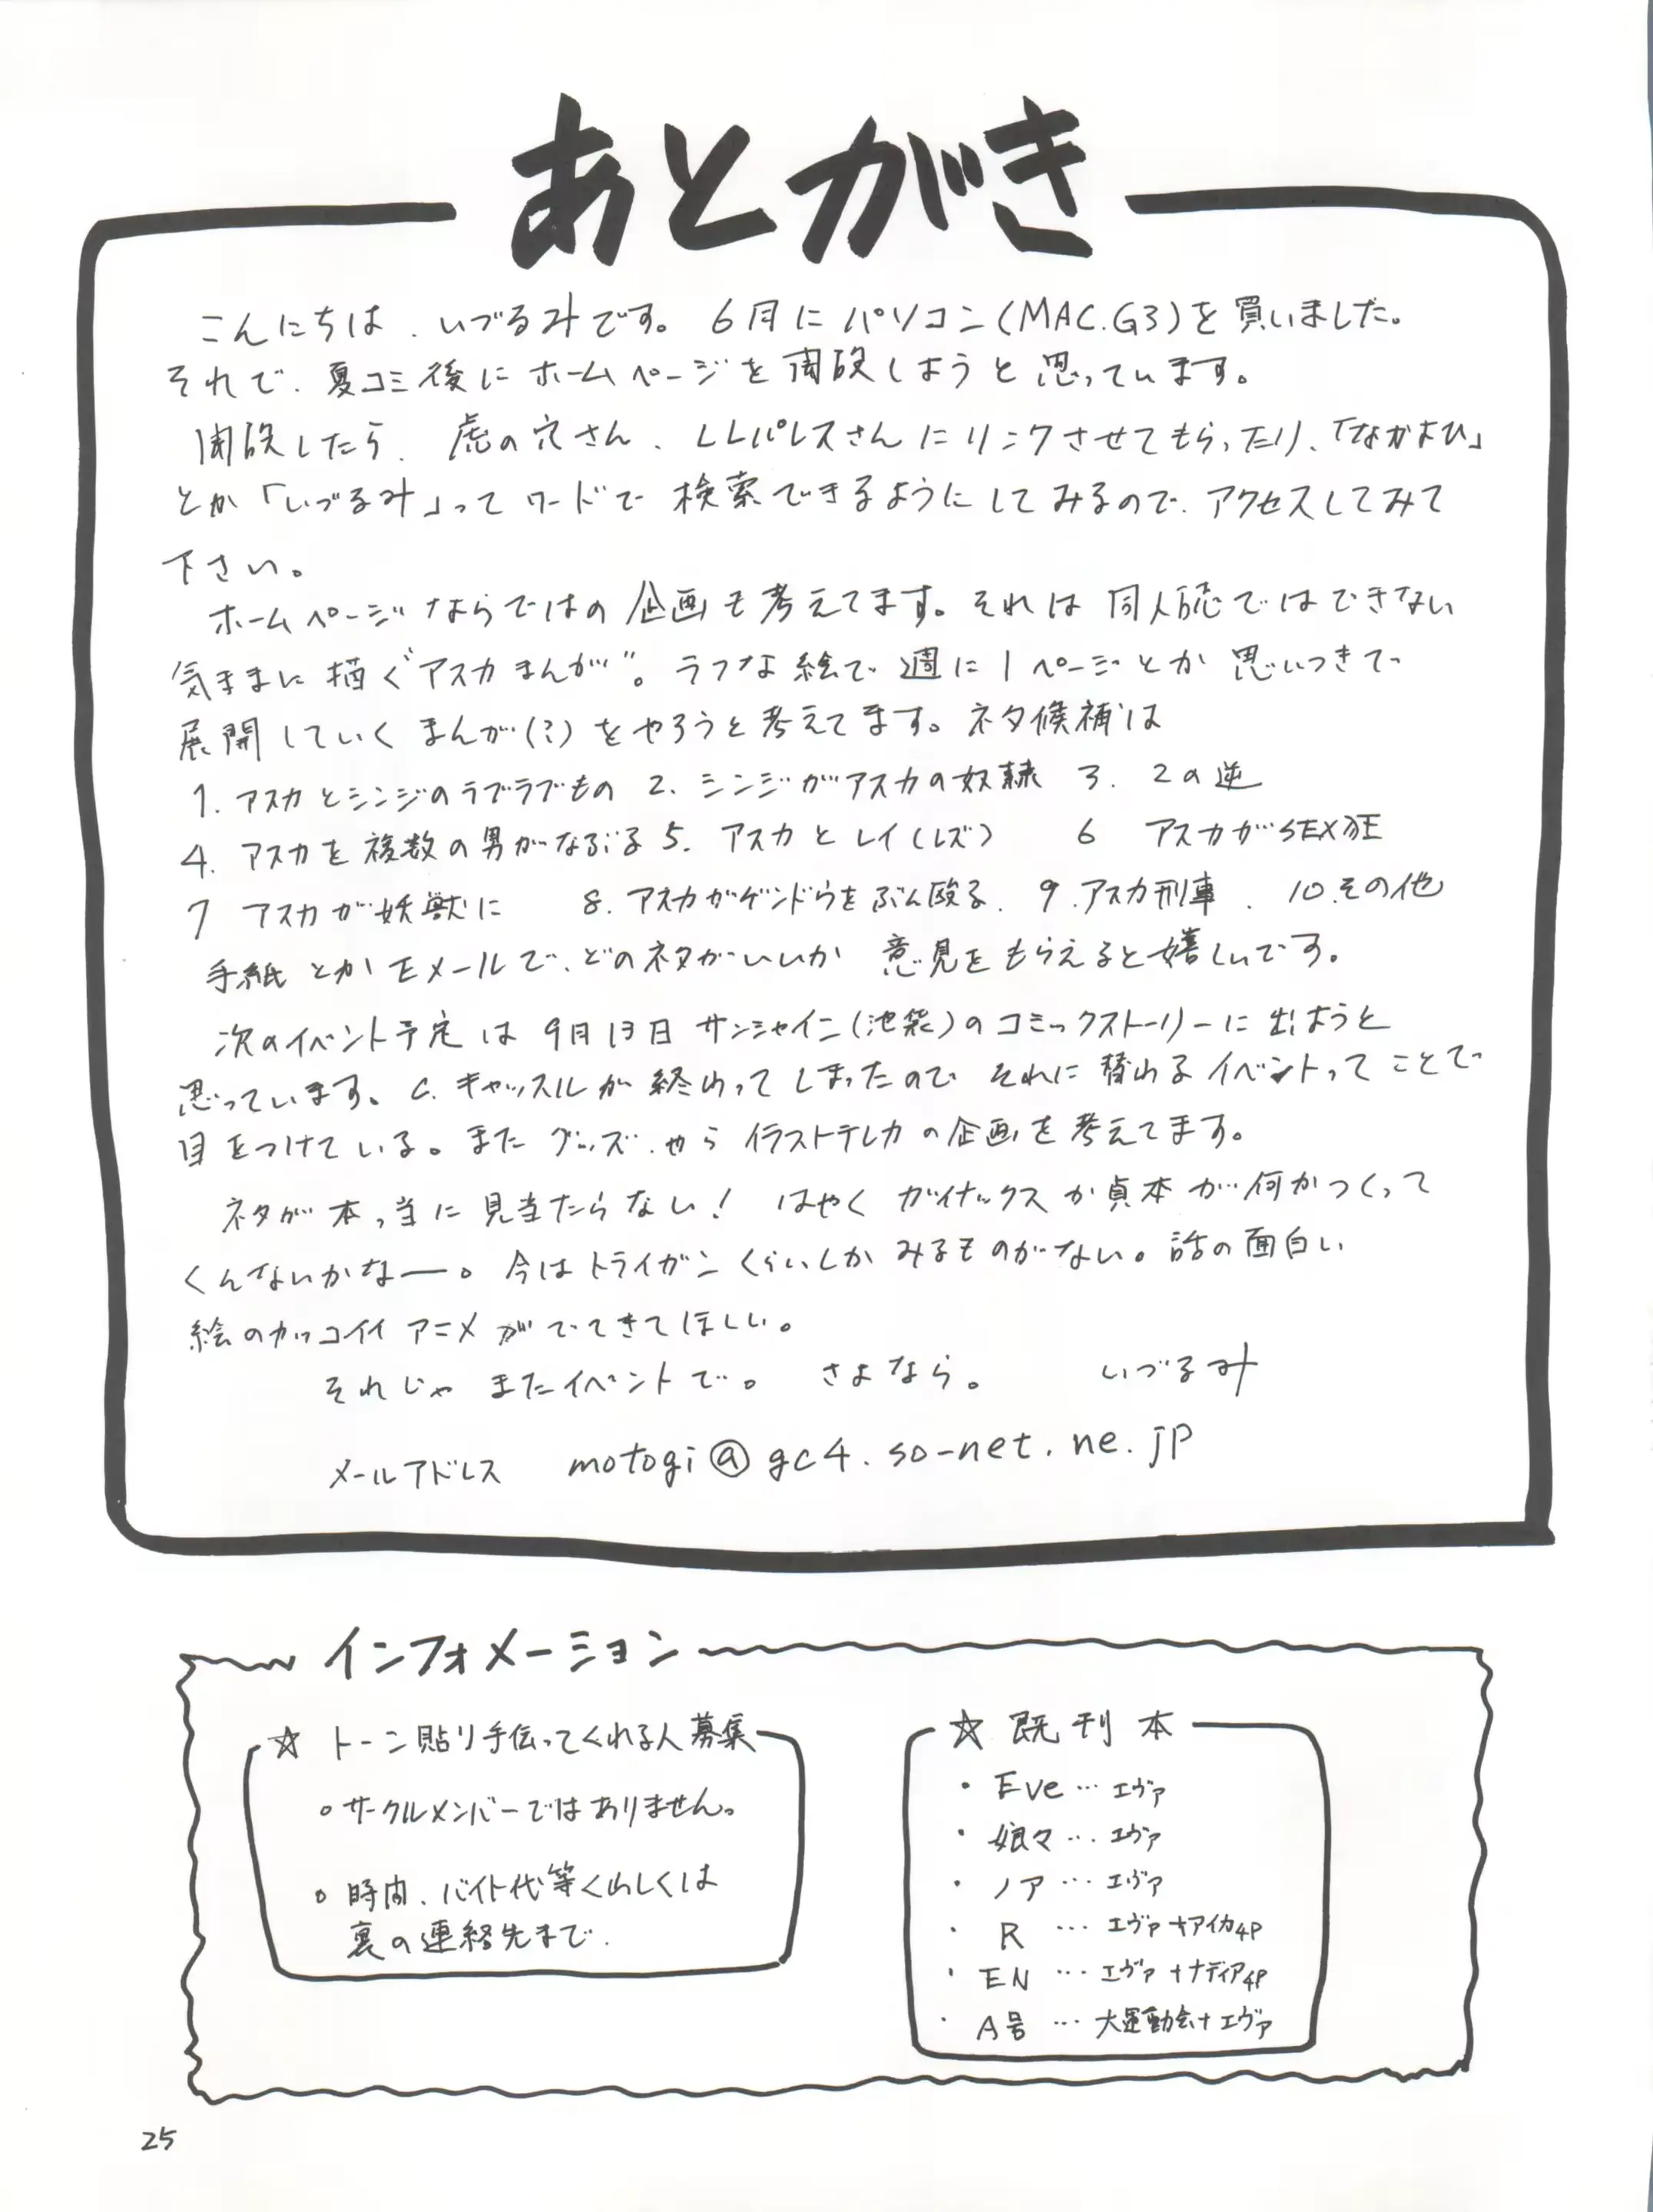 あとがき
こんにちは、いづるみです。6月にパソコン(MAC.G3)を買いました。
それで、夏コミ後にホームページを開設しようと思っています。
開設したら、虎の穴さん、LLパレスさんにリンクさせてもらったり、「なかよひ」
とか「いづるみ」ってワードで検索できるようにしてみるので、アクセスしてみて
下さい。
ホームページならではの企画も考えてます。それは同人誌ではできない
気ままに描く“アスカまんが”。ラフな絵で週に1ページとか思いつきで
展開していくまんが(?)をやろうと考えてます。ネタ候補は
1. アスカとシンジのラブラブもの 2. シンジがアスカの奴隷 3. 2の逆
4. アスカを複数の男がなぶる 5. アスカとレイ(レズ) 6 アスカがSEX狂
7 アスカが妖獣に 8. アスカがゲンドウをぶん殴る. 9. アスカ刑事. 10. その他
手紙とかEメールで、どのネタがいいか意見をもらえると嬉しいです。
次のイベント予定は9月13日サンシャイン(池袋)のコミックストーリーに出ようと
思っています。C.キャッスルが終わってしまったのでそれに替わるイベントってことで
目をつけている。またグッズ.やらイラストテレカの企画を考えてます。
ネタが本っ当に見当たらない! はやくガイナックスか貞本が何かつくって
くんないかなー。今はトライガンくらいしかみるものがない。話の面白い
絵のカッコイイアニメがでてきてほしい。
それじゃまたイベントで。さよなら。 いづるみ
メールアドレス motogi@gc4.so-net.ne.jp
インフォメーション
☆ トーン貼り手伝ってくれる人募集
○ サークルメンバーではありません。
○ 時間、バイト代等くわしくは
裏の連絡先まで.
☆ 既刊本
・ Eve … エヴァ
・ 娘々 … エヴァ
・ ノア … エヴァ
・ R … エヴァ+アイカ4P
・ EN … エヴァ+ナディア4P
・ A号 … 大運動会+エヴァ
25